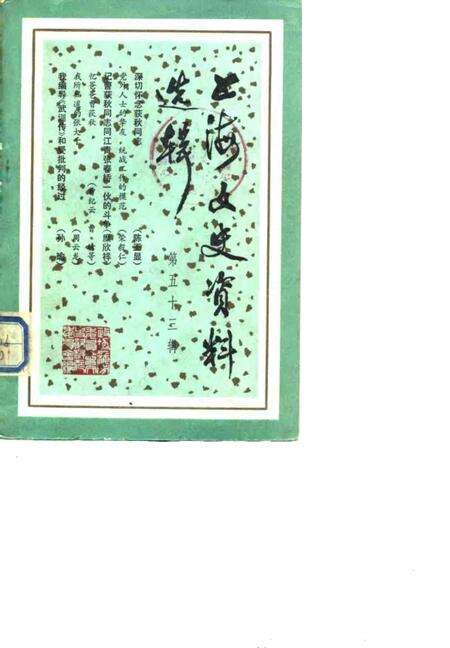 上海文史资料
选辑
第五十三辑
深切怀念荻秋同志（陈丕显）
党外人士的挚友，统战工作的模范（荣毅仁）
记曹荻秋同志同江青张春桥一伙的斗争
忆爸爸曹荻秋
我所知道的张大千
我编导《武训传》和受批判的经过（孙瑜）